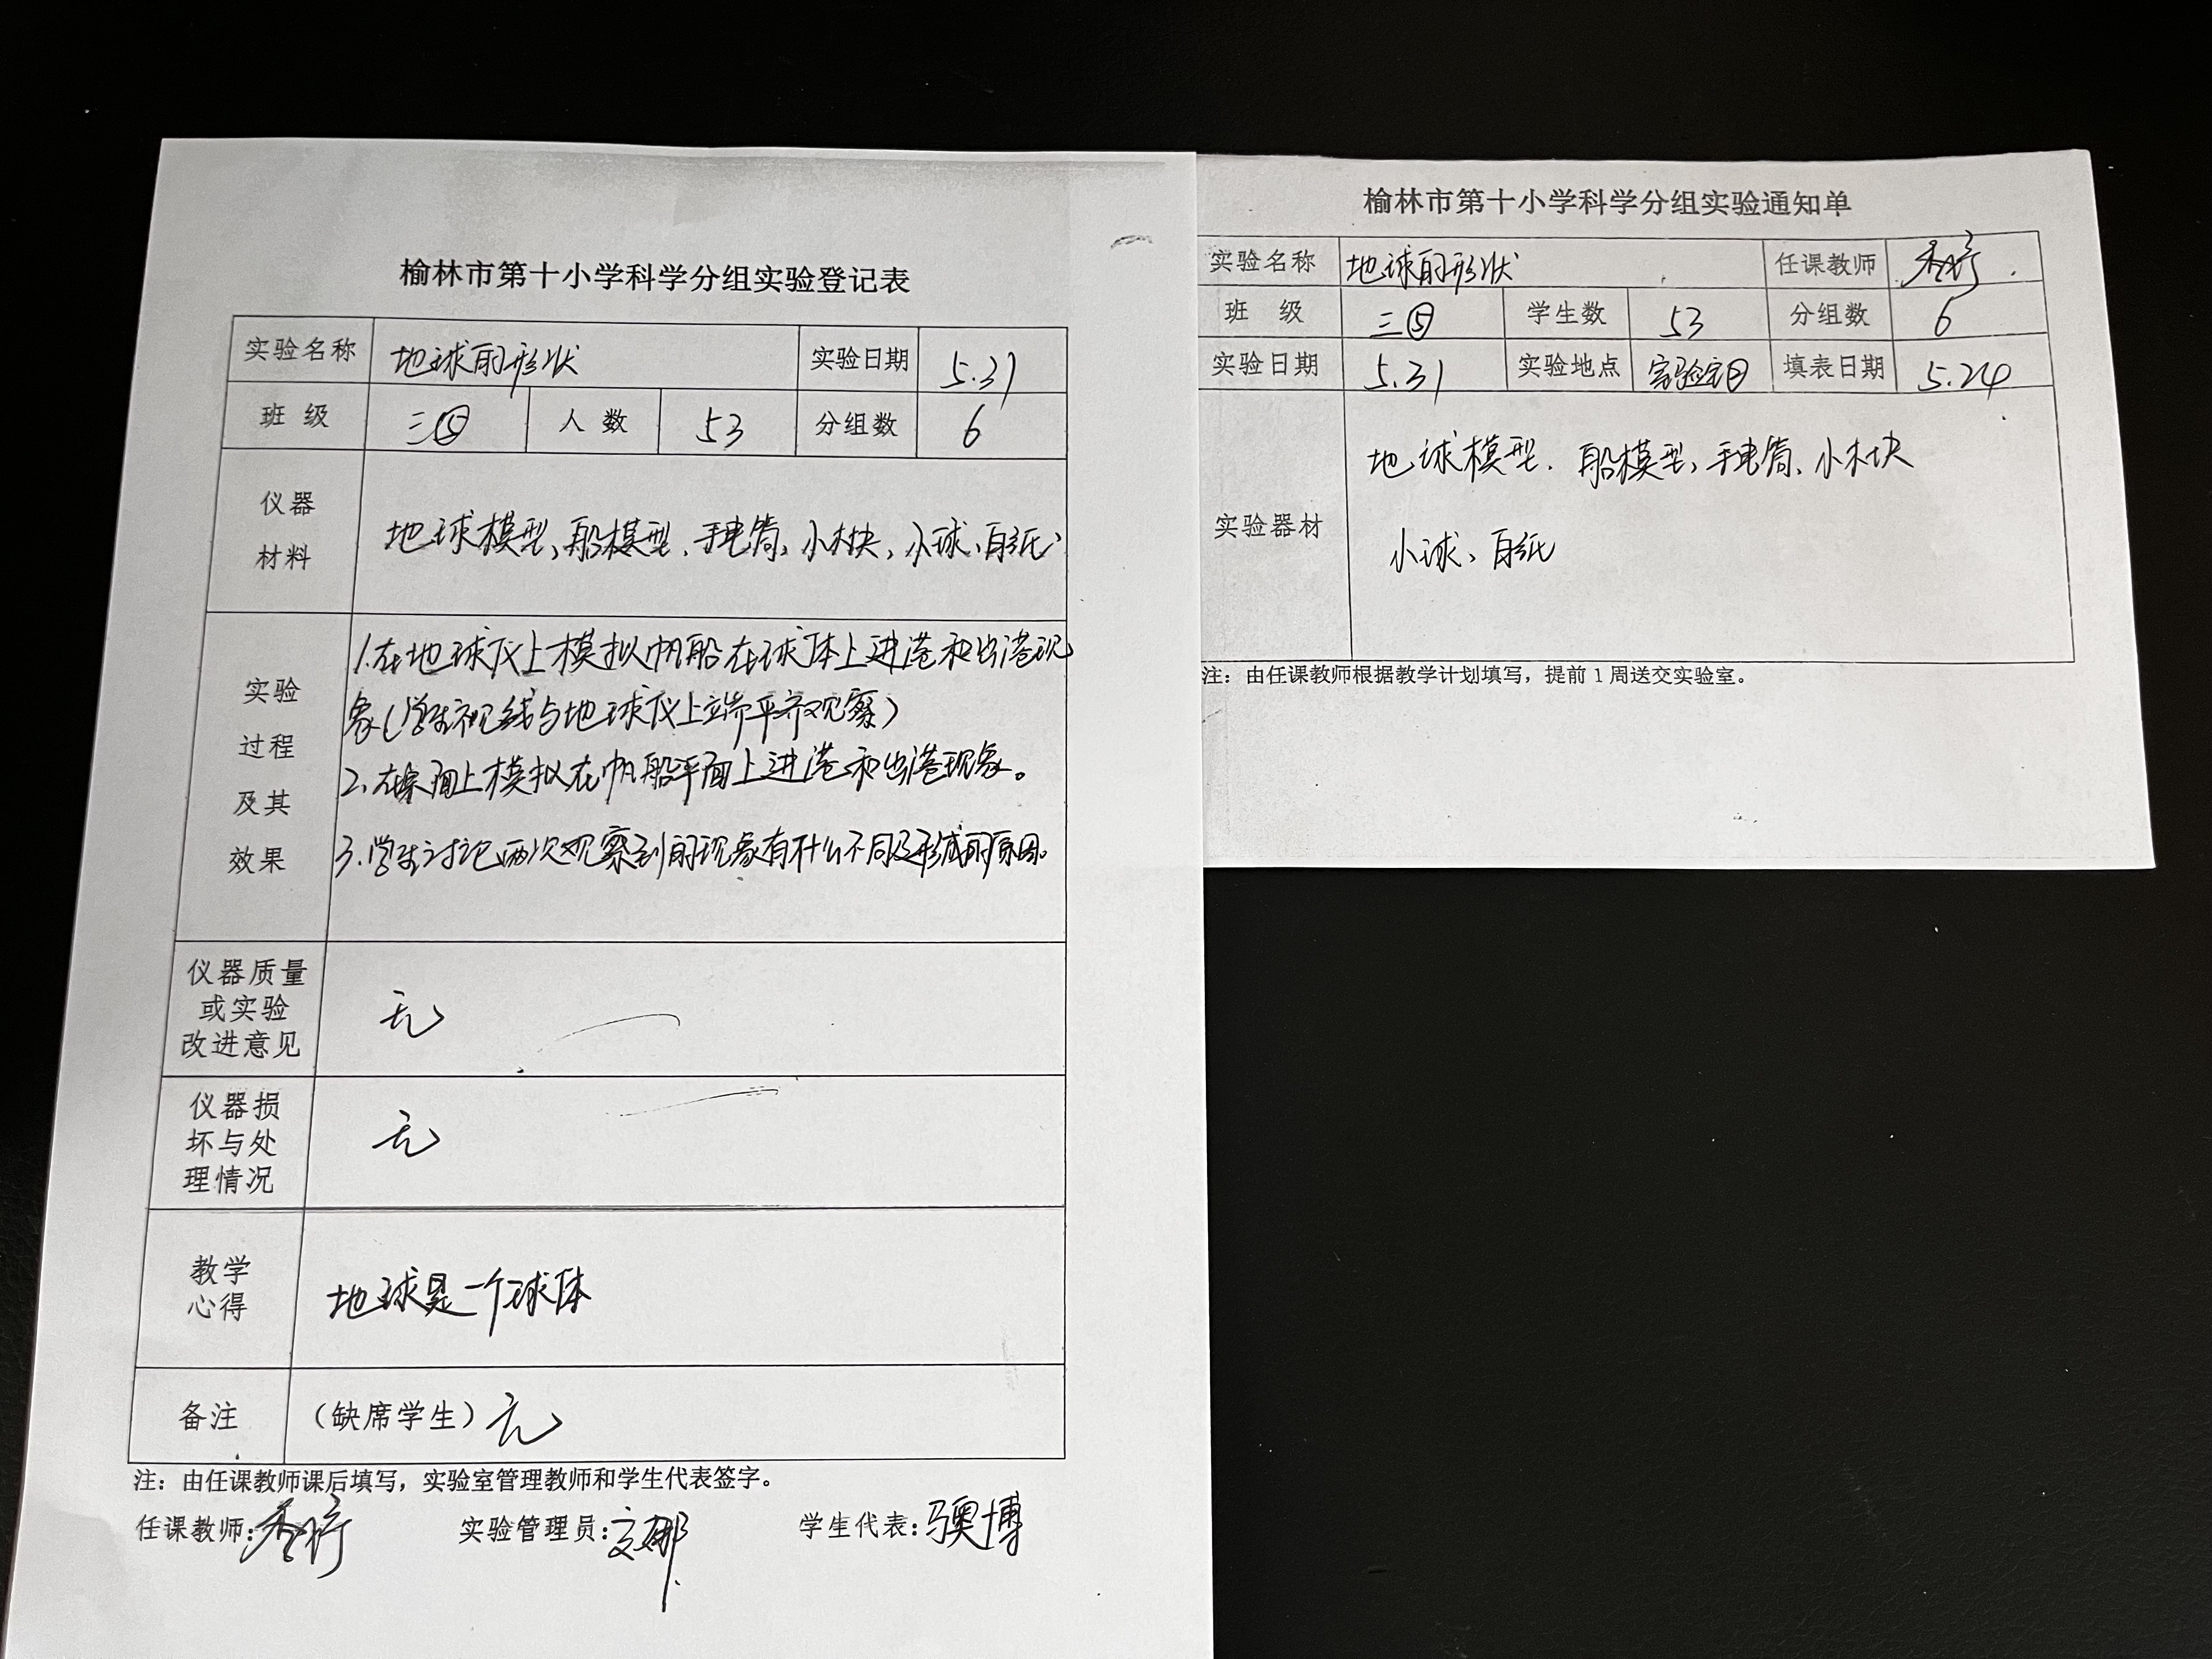 榆林市第十小学科学分组实验登记表
实验名称 地球的形状 实验日期 5.31
班 级 三⑤ 人 数 53 分组数 6
仪器
材料
地球模型、船模型、手电筒、小木块、小球、白纸
实验
过程
及其
效果
1.在地球仪上模拟帆船在球体上进港和出港现
象(学生视线与地球仪上端平齐观察)
2.在桌面上模拟在帆船平面上进港和出港现象。
3.学生讨论两次观察到的现象有什么不同及形成的原因。
仪器质量
或实验
改进意见
无
仪器损
坏与处
理情况
无
教学
心得
地球是一个球体
备注 (缺席学生) 无
注：由任课教师课后填写，实验室管理教师和学生代表签字。
任课教师: 实验管理员: 学生代表:
榆林市第十小学科学分组实验通知单
实验名称 地球的形状 任课教师
班 级 三⑤ 学生数 53 分组数 6
实验日期 5.31 实验地点 实验室 填表日期 5.24
实验器材
地球模型、船模型、手电筒、小木块
小球、白纸
注：由任课教师根据教学计划填写，提前1周送交实验室。